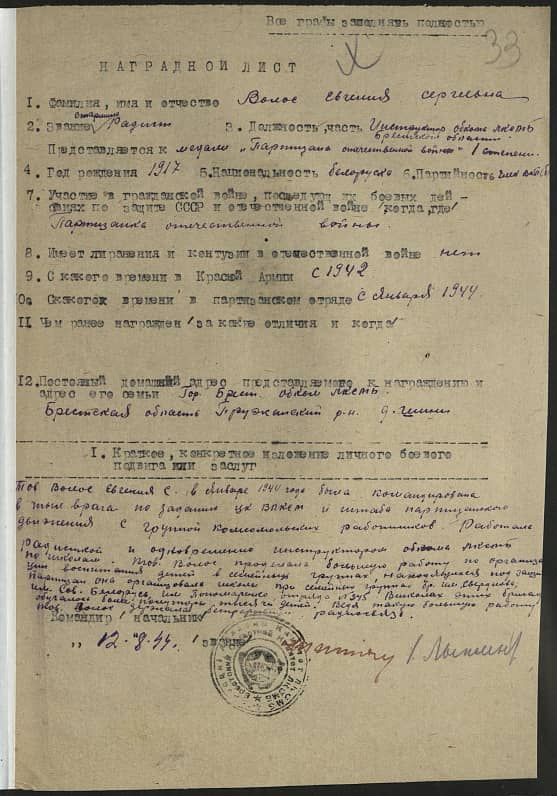 Все графы заполнять полностью
33
НАГРАДНОЙ ЛИСТ
1. Фамилия, имя и отчество Волос Евгения Сергеевна
старшина
2. Звание Радист 3. Должность, часть Инструктор обкома ЛКСМБ
Брестской области
Представляется к медали „Партизана отечественной войны" 1 степени.
4. Год рождения 1917 5. Национальность белоруска 6. Партийность член ВКП(б)
7. Участие в гражданской войне, последующих боевых дей-
ствиях по защите СССР и отечественной войне /когда, где/
Партизанка отечественной войны.
8. Имеет ли ранения и контузии в отечественной войне нет
9. С какого времени в Красной Армии с 1942
10. С какого времени в партизанском отряде с января 1944.
11. Чем ранее награжден /за какие отличия и когда/
12. Постоянный домашний адрес представляемого к награждению и
адрес его семьи Гор. Брест. обком ЛКСМБ.
Брестская область Пружанский р-н д.
1. Краткое, конкретное изложение личного боевого
подвига или заслуг
Тов Волос Евгения С. в январе 1944 года была командирована
в тыл врага по заданию ЦК ВЛКСМ и штаба партизанского
движения с группой комсомольских работников. Работала
радисткой и одновременно инструктором обкома ЛКСМБ
по школам. Тов. Волос проделала большую работу по организа-
ции воспитания детей в семейных группах, находящихся под защитой
партизан она организовала школы при семейных группах бр. им. Свердлова,
им. Сов. Белоруссии, им. Пономаренко, отряда №345 В школах этих бригад
обучалось более полутора тысячи детей. Ведя такую большую работу
тов. Волос держала радиосвязь.
Командир /начальник
„ 12. 8. 44. /звание/